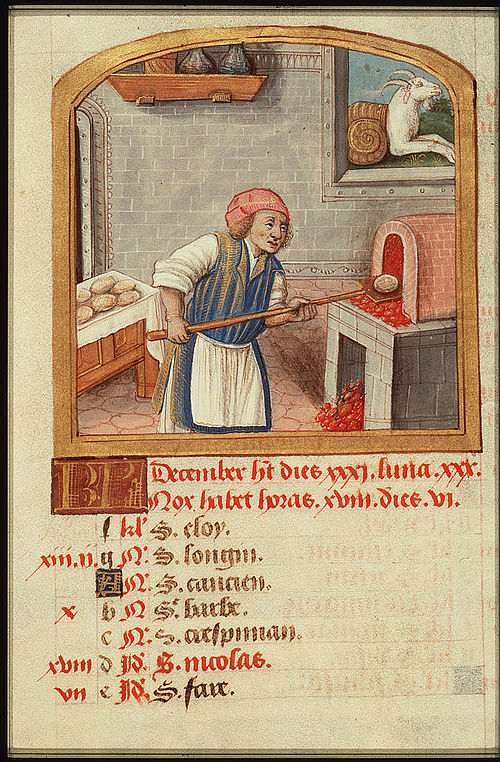 KL December h̄t dies xxxi. luna. xxx.
Nox habet horas. xviii. dies. vi.
f kl' S. eloy.
xiii. ii. g N. S. longin.
A N. S. cancien.
x b N S. barbe.
c N. S. crespinian.
xviii d Id. S. nicolas.
vii e Id. S. fare.